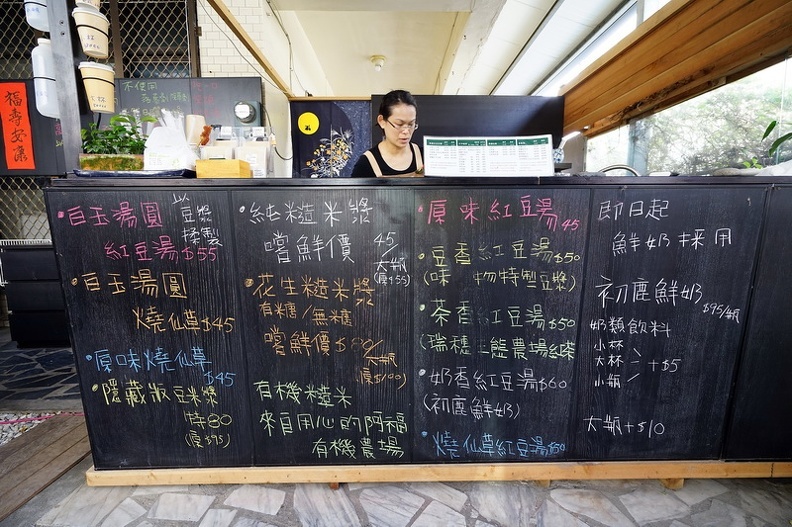 福壽安康
不使用
•白玉湯圓
以豆漿揉製
紅豆湯$55
•白玉湯圓
燒仙草$45
•原味燒仙草
$45
•隱藏版豆米漿
特80
(原$95)
•純糙米漿
嚐鮮價 45/大瓶
(原$55)
•花生糙米漿
有糖/無糖
嚐鮮價$80/大瓶
(原$100)
有機糙米
來自用心的阿福
有機農場
•原味紅豆湯45
•豆香紅豆湯$50
(味 物特製豆漿)
•茶香紅豆湯$50
(瑞穗生態農場紅茶)
•奶香紅豆湯$60
(初鹿鮮奶)
•燒仙草紅豆湯$50
即日起
鮮奶採用
初鹿鮮奶
$95/瓶
奶類飲料
小杯
大杯 +$5
小瓶
大瓶+$10